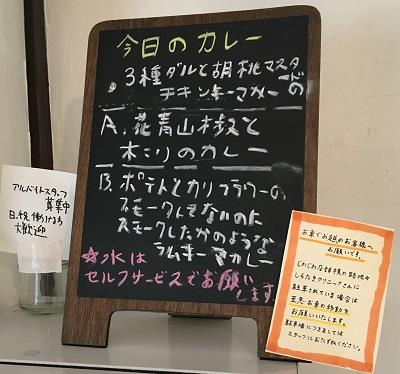 今日のカレー
3種ダルと胡桃マスタードの
チキンキーマカレー
A. 花青山椒と
木こりのカレー
B. ポテトとカリフラワーの
スモークしてないのに
スモークしたかのような
ラムキーマカレー
☆水は
セルフサービスでお願い
します
アルバイトスタッフ
募集中
日、祝働ける方
大歓迎
お車でお越しのお客様へ
お願いです。
じわじわな詳積の路地や
しろたきクリニックさんに
駐車されている場合は
至急お車の移動を
お願いいたします。
駐車場につきましては
スタッフにおたずねください。